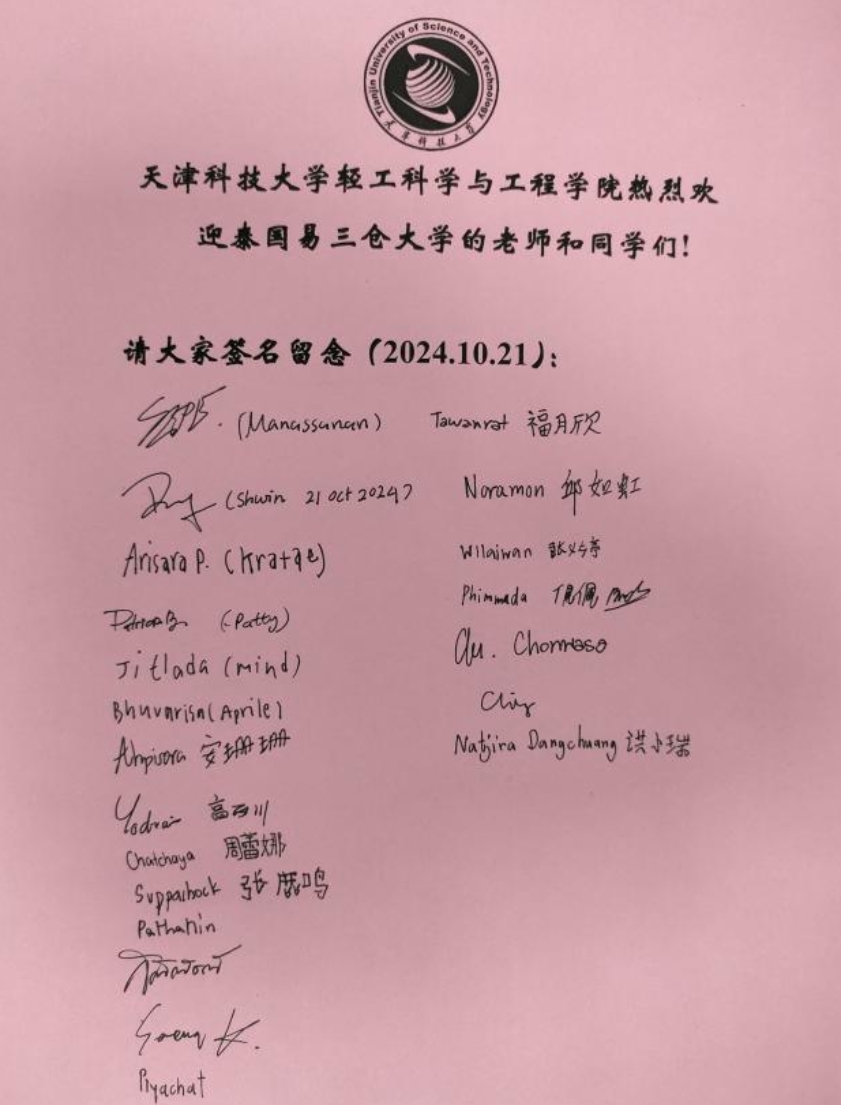 Tianjin University of Science and Technology
天津科技大学
天津科技大学轻工科学与工程学院热烈欢
迎泰国易三仓大学的老师和同学们!
请大家签名留念(2024.10.21):
(Manassanan)
(Shwin 21 Oct 2024)
Arisara P. (Kratae)
(Patty)
Jitlada (mind)
Bhuvarisa (Aprile)
Ahpisara 安珊珊
高石川
Chatchaya 周蕾娜
张鹿鸣
Pathanin
K.
Piyachat
Tawanrat 福月欣
Noramon 邱如虹
Wilaiwan
Phimmada 佩佩
Natjira Dangchuang 洪小瑞